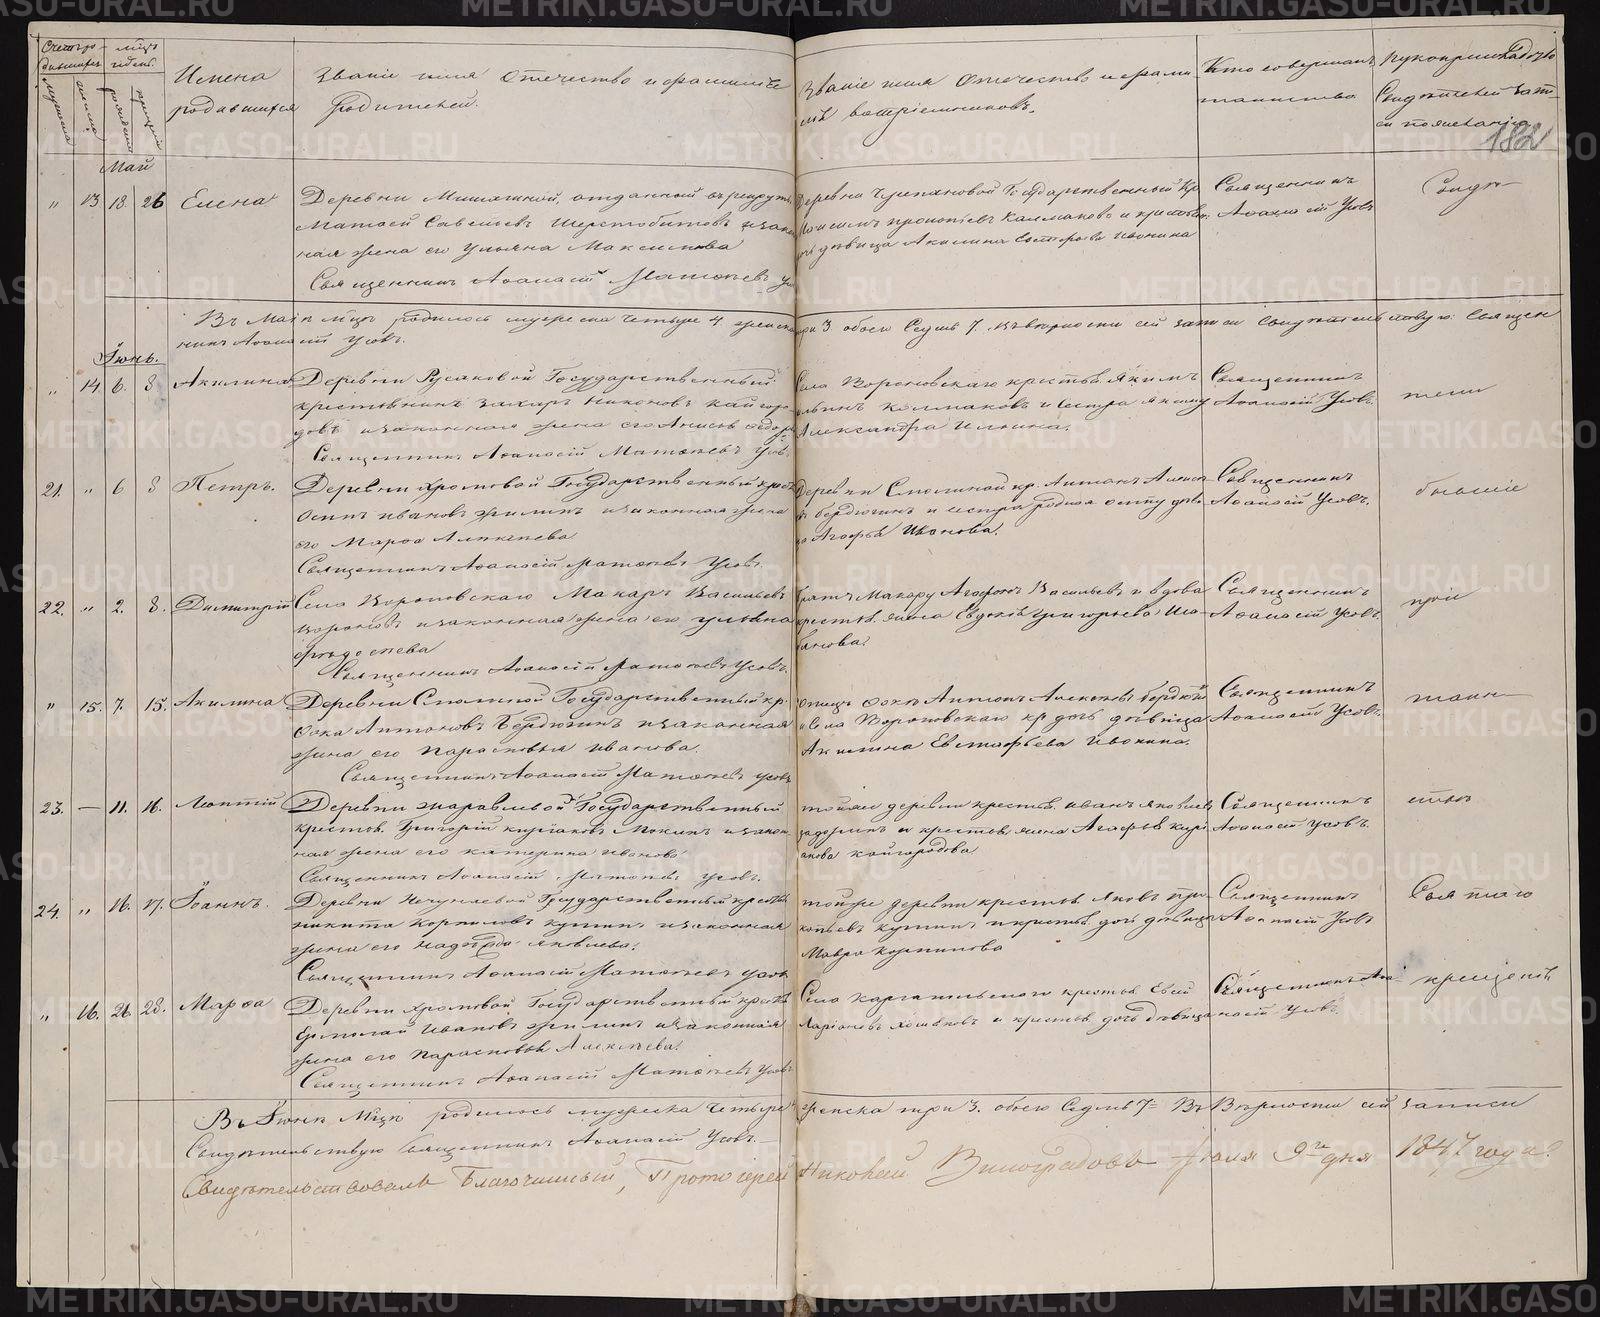 Счетъ ро-
дившихся
мужеска
женска
мѣсц
рожденія
крещенія
Имена
родавшихся
Званіе имя Отечество и фамиліе
Родителей.
Званіе имя Отечество и фами-
лія воспріемниковъ.
Кто совершалъ
таинство
Рукоприкладство
Свидѣтелей запи-
си по желанію
182
Май
" 13 18. 26 Елена
Деревни отданный въ рекруты
Матвей Савельевъ Шерстобитовъ и закон
ная жена его Ульяна Максимова
Священникъ Аѳанасій Матѳѣевъ Ус
Деревни Черепановой Государственный кр.
прокопьевъ Калмаковъ и крестьян.
дѣвица Акилина Ивонина
Священникъ
Аѳанасій Усовъ
Свидѣ-
Въ Маѣ мѣсцѣ родилось мужеска четыре 4 женска
три 3. обоего Седмь 7. въ вѣрности сей записи свидѣтельствую: Священ
никъ Аѳанасій Усовъ.
Іюнь.
" 14. 6. 8 Акилина
Деревни Русаковой Государственный
крестьянинъ Захаръ Никоновъ Кайгоро-
довъ и законная жена его Анисья Ѳедор
Священникъ Аѳанасій Матѳѣевъ Усовъ
Села Вороновскаго крестьян. Якимъ
Ильинъ Колмаковъ и сестра Якиму
Александра Ильина.
Священникъ
Аѳанасій Усовъ.
тели
21. " 6 8 Петръ.
Деревни Хромовой Государственный крест
Осипъ Ивановъ Жилинъ и законная жена
его Марѳа Алексѣева
Священникъ Аѳанасій Матѳѣевъ Усовъ
Деревни Смолиной кр. Антонъ Алексѣ-
въ Бердюгинъ и сестра родная Осипу дѣви-
ца Агафья Иванова.
Священникъ
Аѳанасій Усовъ.
бывшіе
22. " 2. 8. Димитрій
Села Вороновскаго Макаръ Васильевъ
Вороновъ и законная жена его Ульяна
Ѳедосѣева
Священникъ Аѳанасій Матѳѣевъ Усовъ.
Братъ Макару Агафонъ Васильевъ и вдова
крестьян. жена Евдокія Григорьева
Священникъ
Аѳанасій Усовъ.
при
" 15. 7. 15. Акилина
Деревни Смолиной Государственный кр.
Ѳока Антоновъ Бердюгинъ и законная
жена его Парасковья Иванова.
Священникъ Аѳанасій Матѳѣевъ Усовъ
отецъ Ѳоки Антонъ Алексѣевъ Бердюгинъ
и Села Вороновскаго кр дочь дѣвица
Акилина Евстафьева Ивонина.
Священникъ
Аѳанасій Усовъ.
таин-
23. — 11. 16. Леонтій
Деревни Журавлевой Государственный
крестьян. Григорій Киріаковъ Мокинъ и закон
ная жена его Катерина Иванова
Священникъ Аѳанасій Матѳѣевъ Усовъ.
тойже деревни крестьян. Иванъ Яковлевъ
Задоринъ и крестьян. жена Агафья Кирі
акова Кайгородова
Священникъ
Аѳанасій Усовъ.
ствѣ
24. " 16. 17. Іоаннъ.
Деревни Государственный крестьян
Никита Корниловъ и законная
жена его Надежда Яковлева.
Священникъ Аѳанасій Матѳѣевъ Усовъ
тойже деревни крестьян. Яковъ Про-
копьевъ и крестьян. дочь дѣвица
Мавра Корнилова
Священникъ
Аѳанасій Усовъ
Святаго
" 16. 21. 28. Марѳа
Деревни Хромовой Государственный крестьян
Ермолай Ивановъ Жилинъ и законная
жена его Парасковья Алексѣева.
Священникъ Аѳанасій Матѳѣевъ Усовъ
Села Каргапольскаго крестьян. Евсей
Ларіоновъ и крестьян. дочь дѣвица
Священникъ Аѳа
насій Усовъ.
крещенія
Въ Іюнѣ Мѣсцѣ родилось мужеска четыре женска три 3. обоего Седмь 7 = Въ Вѣрности сей записи
Свидѣтельствую Священникъ Аѳанасій Усовъ.
Свидѣтельствовалъ Благочинный, Протоіерей Николай Виноградовъ Іюля 9го дня 1847 года.
METRIKI.GASO-URAL.RU